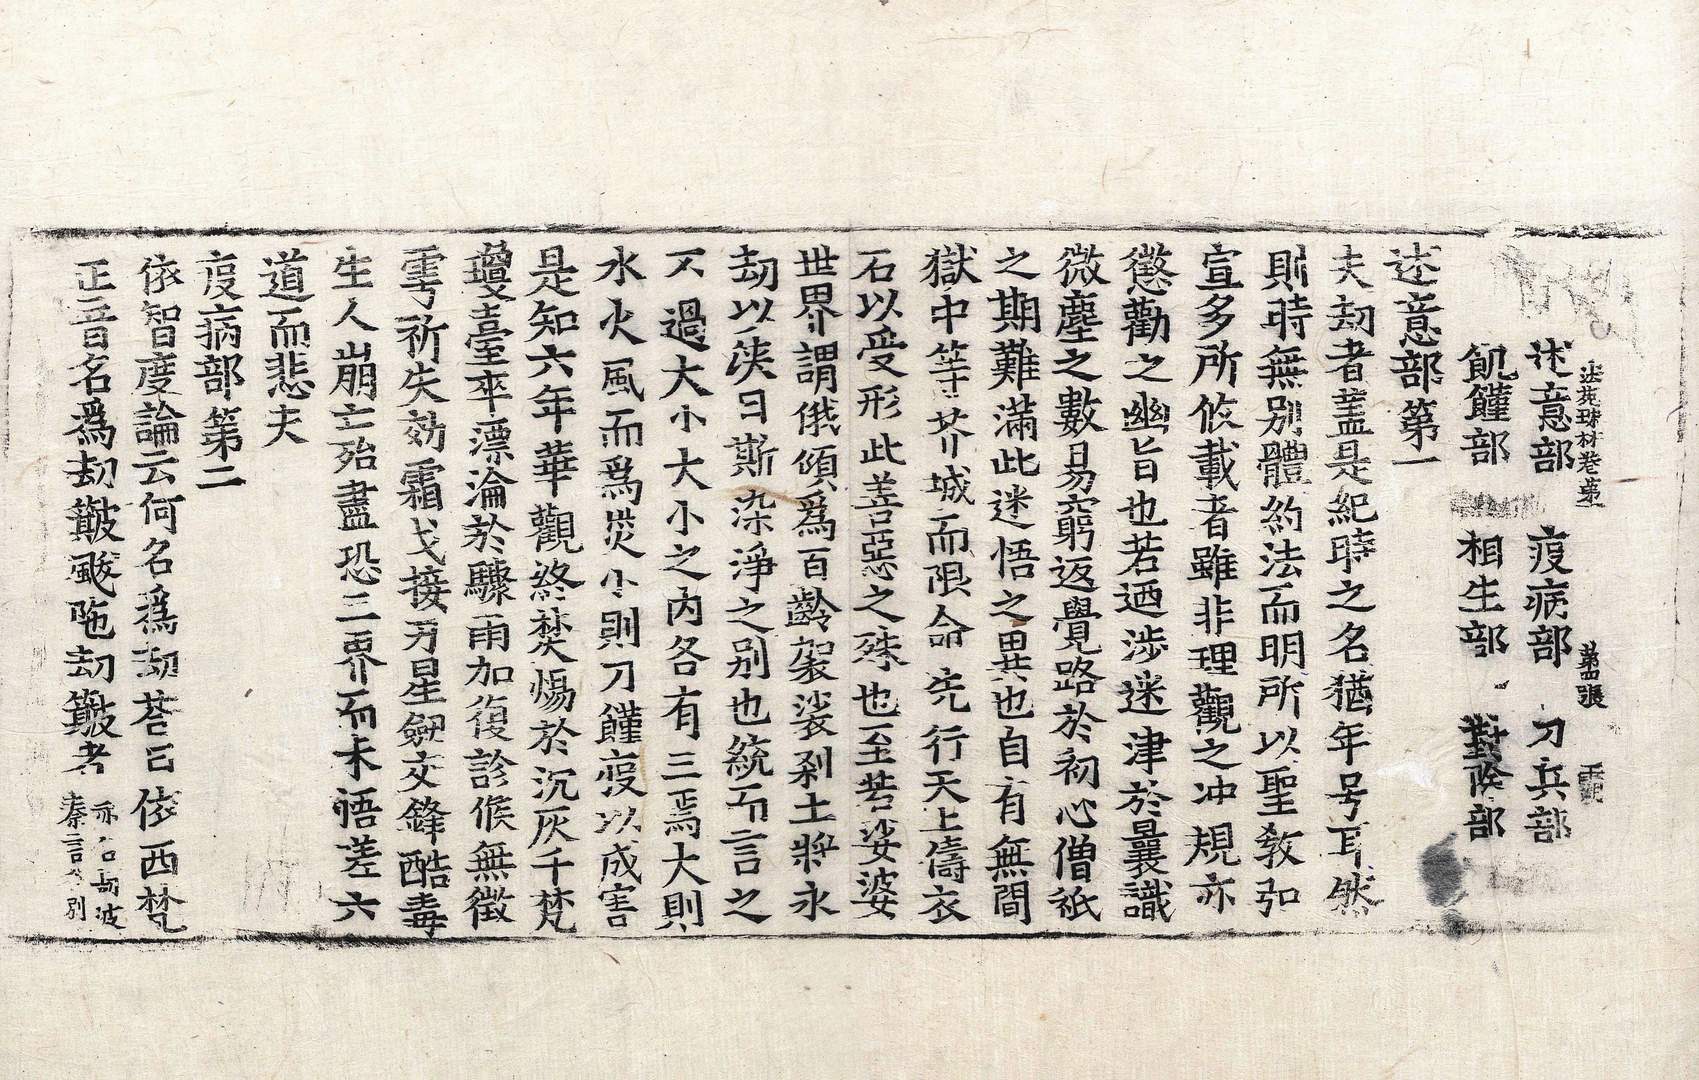 述意部 疫病部 刀兵部
法苑珠林卷第 第四張
飢饉部 相生部 對除部
述意部第一
夫劫者蓋是紀時之名猶年号耳然
則時無別體約法而明所以聖教弘
宣多所攸載者雖非理觀之沖規亦
懲勸之幽旨也若迺涉迷津於曩識
微塵之數易窮返覺路於初心僧祇
之期難滿此迷悟之異也自有無間
獄中等芥城而限命先行天上儔衣
石以受形此善惡之殊也至若娑婆
世界謂俄傾爲百齡袈裟剎土將永
劫以浹日斯染淨之別也統而言之
不過大小大小之內各有三焉大則
水火風而爲災小則刀饉疫以成害
是知六年華觀終焚惕於沉灰千梵
瓊臺卒漂淪於驟雨加復診候無徵
雩祈失効霜戈接刃星劒交鋒酷毒
生人崩亡殆盡恐三界而未悟差六
道而悲夫
疫病部第二
依智度論云何名爲劫荅曰依西梵
正音名爲劫簸颰陁劫簸者 亦名劫波
秦言分別